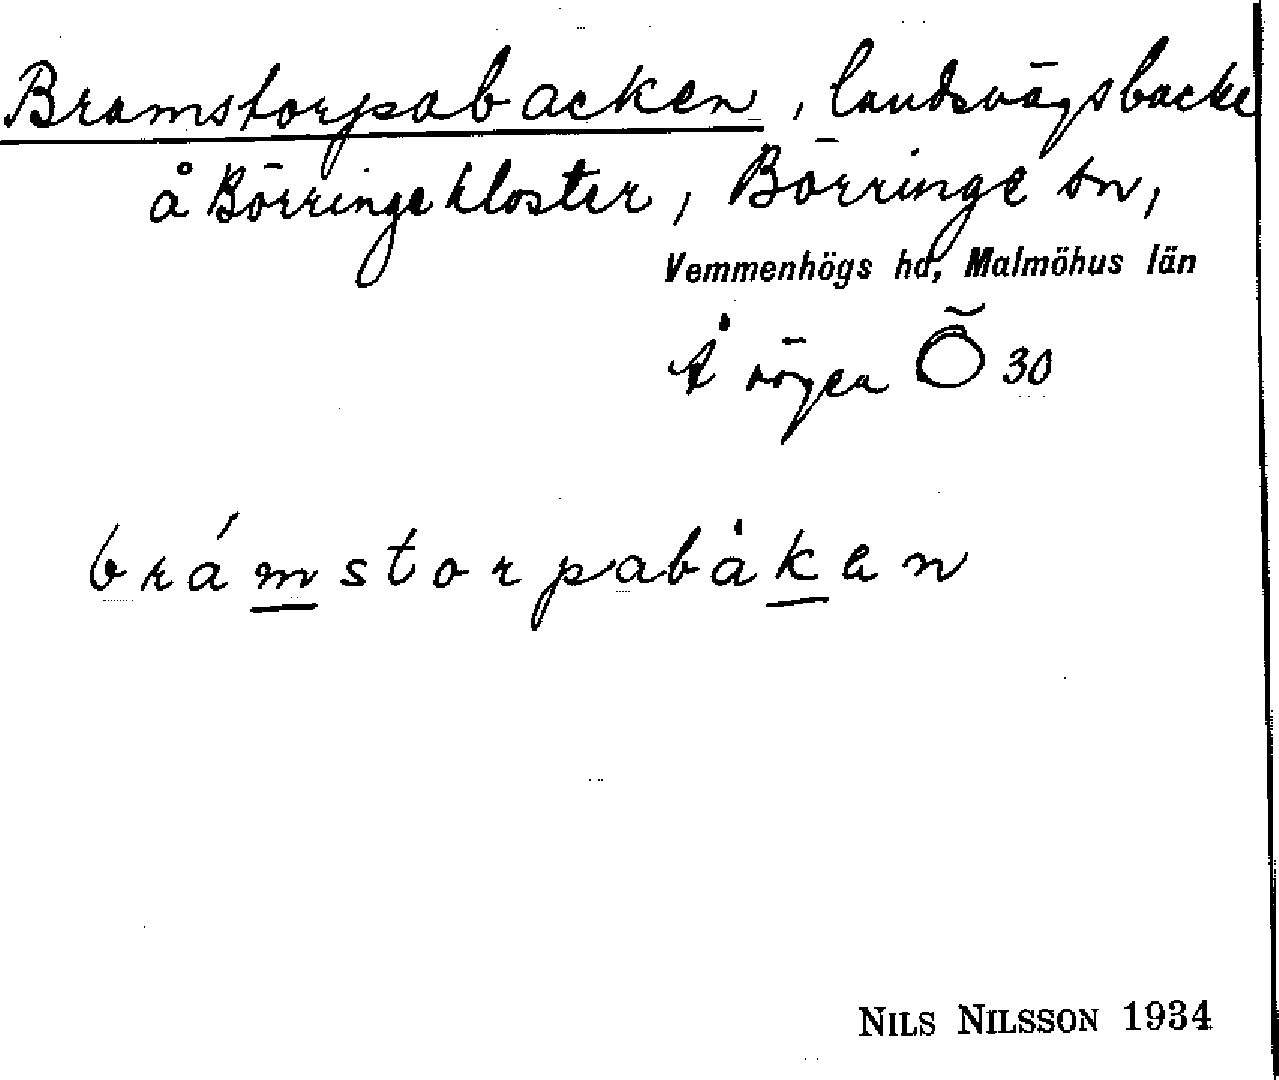 Bramstorpabacken, landsvägsbacke
å Börringekloster, Börringe sn,
Vemmenhögs hd, Malmöhus län
Å vägen Ö 30
brámstorpabàken
NILS NILSSON 1934